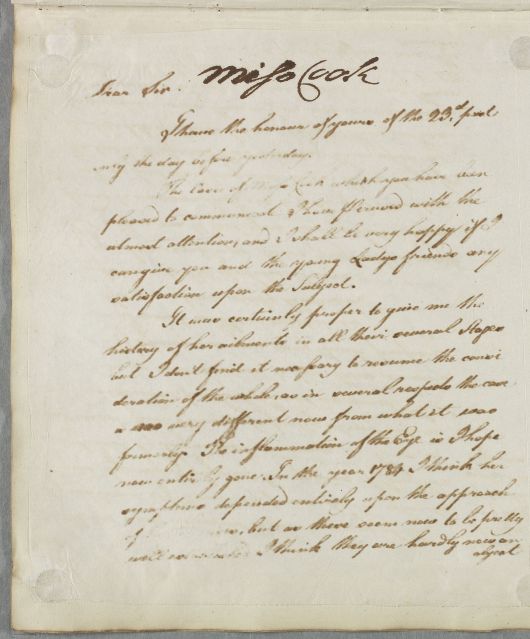 Miss Cook
Dear Sir.
I have the honour of yours of the 23.d post
only the day before yesterday.
The Case of Miss Cook which you have been
pleased to communicat I have perused with the
utmost attention, and I shall be very happy if I
can give you and the young Ladys friends any
satisfaction upon the Subject.
It was certainly proper to give me the
history of her ailments in all their several Stages
but I don't find it necessary to resume the consi
deration of the whole, as in several respects the case
is very different now from what it was
formerly. The inflammation of the Eye is I hope
now entirely gone. In the year 1784 I think her
symptoms depended entirely upon the approach
of but as these seem now to be pretty
well I think they are hardly now an
object